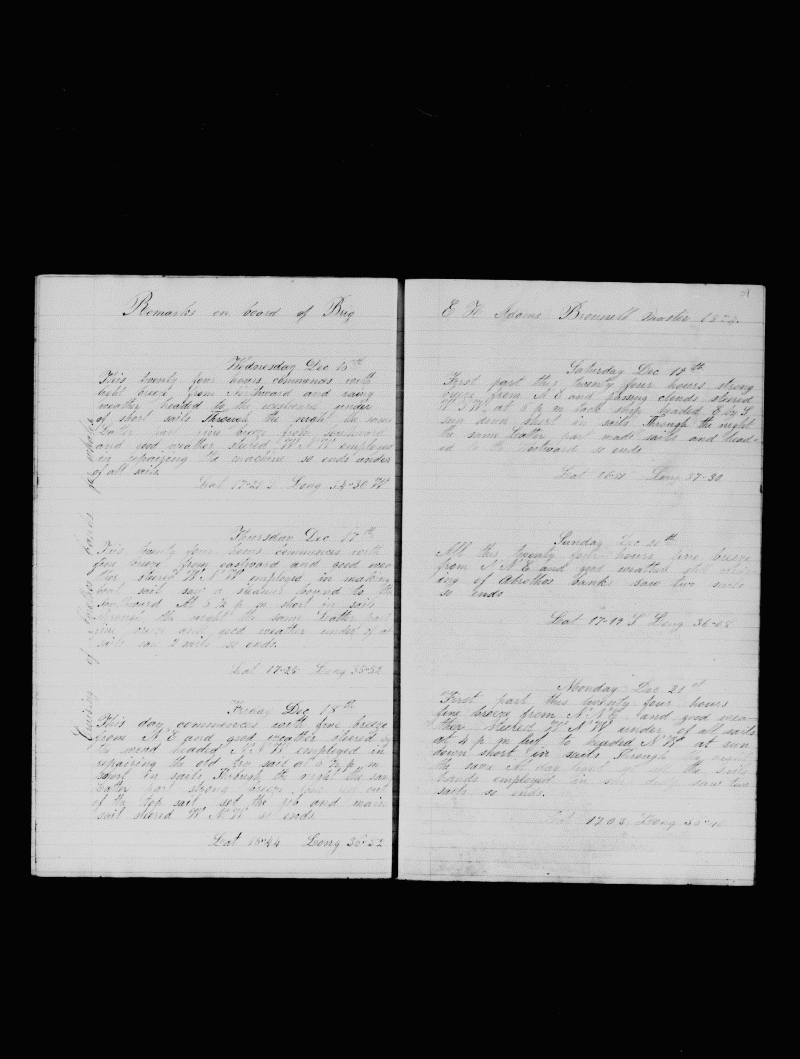 Remarks on board of Brig
Wednesday Dec 16th
This twenty four hours commences with
breeze from northward and rainy
weather headed to the westward under
of short sails Through the night the same
Latter part fine breeze from northward
and good weather stered W N W employed
in repairing the machine so ends under
of all sails
Lat 17-21 S Long 34-30 W
Thursday Dec 17th
This twenty four hours commences with
fine breeze from eastward and good wea
ther stered W N W employed in making
boat sail saw a steamer bound to the
southward At 5 ½ p m short in sails
through the night the same Latter part
fine breeze and good weather under of all
sails saw 2 sails so ends.
Lat 17-25 Long 35-52
Friday Dec 18th
This day commences with fine breeze
from N E and good weather stered by
the wind headed N N W employed in
repairing the old try sail at 5 ½ p m
short in sails Through the night the same
Latter part strong breeze
of the top sail set the jib and main
sail stered W N W so ends
Lat 16-44 Long 36-52
Cruising of Abrolhos banks for whales
31
E H Adams Brownell master 1874
Saturday Dec 19th
First part this twenty four hours strong
breeze from N E and passing clouds stered
W S W at 5 p m tack ship headed E by S
sun down short in sails Through the night
the same Latter part made sails and head-
ed to the westward so ends
Lat 16-51 Long 37-30
Sunday Dec 20th
All this twenty four hours fine breeze
from N N E and good weather still cruis
ing of Abrothos banks saw two sails
so ends
Lat 17-19 S Long 36-08
Monday Dec 21st
First part this twenty four hours
fine breeze from N N E and good wea-
ther stered W N W under of all sails
at 4 p m headed N W at sun
down short in sails Through the night
the same At day light set all the sails
hands employed in ship duty saw two
sails so ends.
Lat 17 03 Long 35-